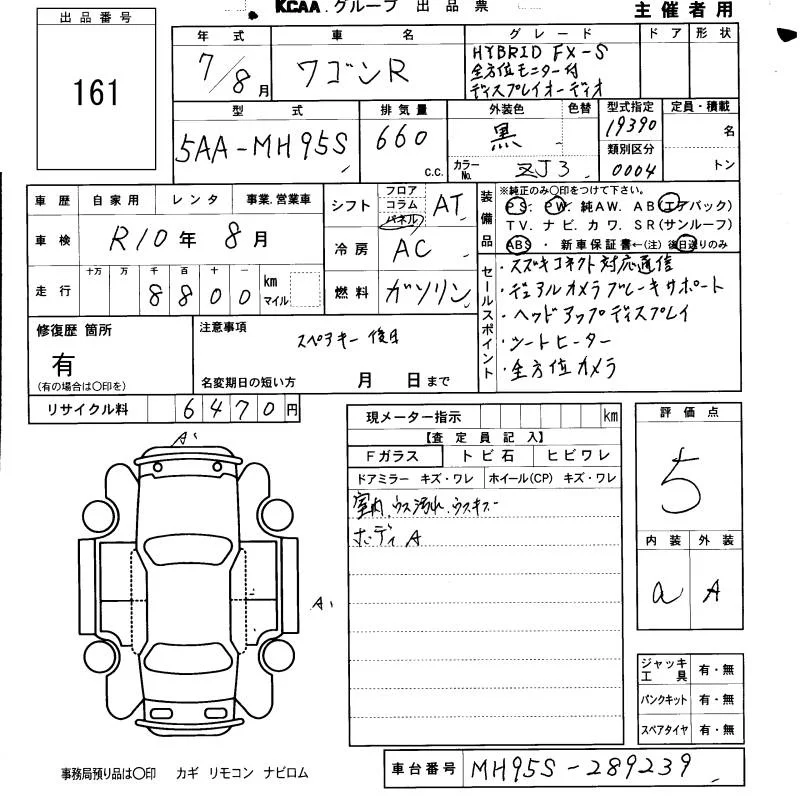 KCAA.グループ 出品票
主催者用
出品番号
161
年式
7/8月
車名
ワゴンR
グレード
HYBRID FX-S
全方位モニター付
ディスプレイオーディオ
ドア 形状
型式
5AA-MH95S
排気量
660
C.C.
外装色 色替
黒
カラーNo. ZJ3
型式指定
19390
類別区分
0004
定員・積載
名
トン
車歴 自家用 レンタ 事業.営業車
車検 R10年8月
走行 十万 万 千 百 十 一
8800
km
マイル
シフト
フロア
コラム
パネル
AT
冷房 AC
燃料 ガソリン
装備品
※純正のみ○印をつけて下さい。
PS. PW. 純AW. AB(エアバック)
TV. ナビ. カワ. SR(サンルーフ)
ABS ・ 新車保証書←(注)後日送りのみ
セールスポイント
・スズキコネクト対応通信
・デュアルカメラブレーキサポート
・ヘッドアップディスプレイ
・シートヒーター
・全方位カメラ
修復歴 箇所
有
(有の場合は○印を)
注意事項
スペアキー後日
名変期日の短い方 月 日まで
リサイクル料 6470円
現メーター指示 km
【査定員記入】
Fガラス トビ石 ヒビワレ
ドアミラー キズ・ワレ ホイール(CP) キズ・ワレ
室内.ウス汚れ.ウスキズ
ボディA
評価点
5
内装 外装
a A
A1
A1
ジャッキ
工具 有・無
パンクキット 有・無
スペアタイヤ 有・無
事務局預り品は○印 カギ リモコン ナビロム
車台番号 MH95S-289239